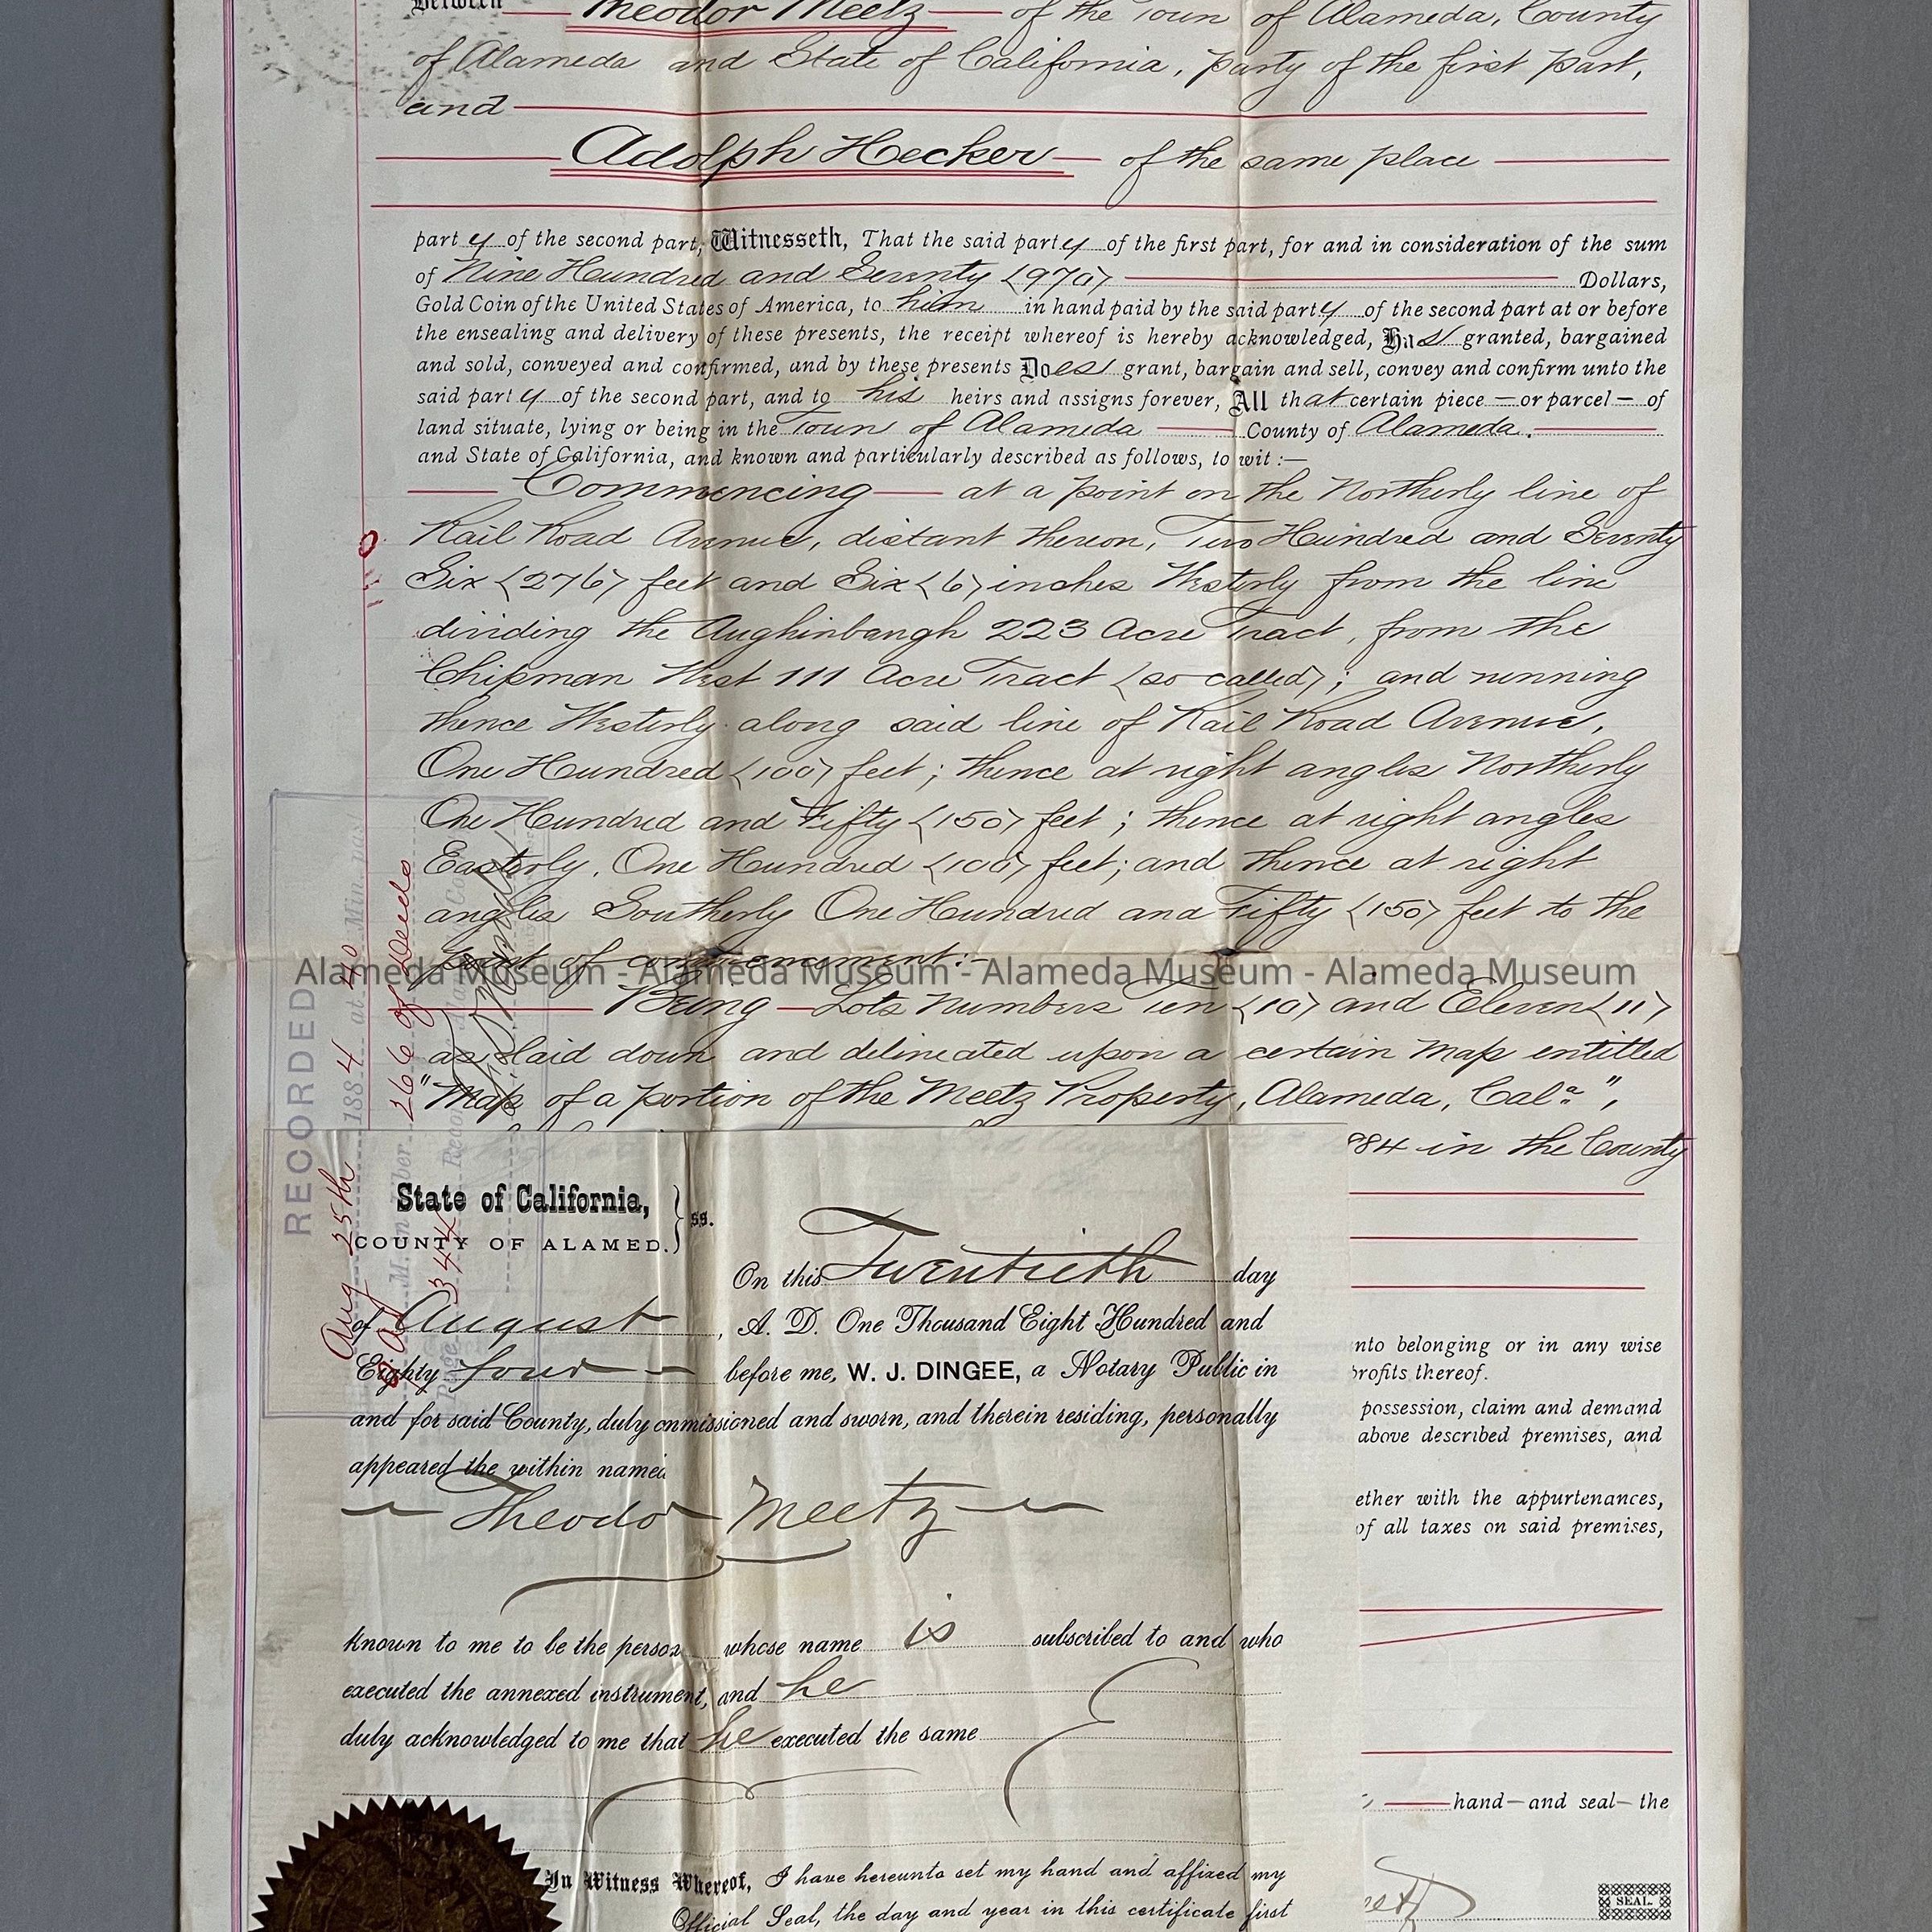 Between Theodor Meetz of the Town of Alameda, County
of Alameda and State of California, party of the first part,
and
Adolph Hecker of the same place
party of the second part, Witnesseth, That the said party of the first part, for and in consideration of the sum
of Nine Hundred and Seventy (970) Dollars,
Gold Coin of the United States of America, to him in hand paid by the said party of the second part at or before
the ensealing and delivery of these presents, the receipt whereof is hereby acknowledged, Has granted, bargained
and sold, conveyed and confirmed, and by these presents Does grant, bargain and sell, convey and confirm unto the
said party of the second part, and to his heirs and assigns forever, All that certain piece — or parcel — of
land situate, lying or being in the Town of Alameda County of Alameda.
and State of California, and known and particularly described as follows, to wit:—
Commencing — at a point on the Northerly line of
Rail Road Avenue, distant thereon, Two Hundred and Seventy
Six (276) feet and Six (6) inches Westerly from the line
dividing the Aughinbaugh 223 Acre Tract, from the
Chipman West 111 Acre Tract (so called); and running
thence Westerly along said line of Rail Road Avenue,
One Hundred (100) feet; thence at right angles Northerly
One Hundred and Fifty (150) feet; thence at right angles
Easterly, One Hundred (100) feet; and thence at right
angles Southerly One Hundred and Fifty (150) feet to the
point of commencement:-
Alameda Museum - Alameda Museum - Alameda Museum - Alameda Museum
Being — Lots Numbers Ten (10) and Eleven (11)
as laid down and delineated upon a certain Map entitled
"Map of a portion of the Meetz Property, Alameda, Cal.",
884 in the County
RECORDED
Aug 25th 1884 at 40 Min. past
M. in
266 of Deeds
Page 344
State of California,
COUNTY OF ALAMED. } ss.
On this Twentieth day
of August, A. D. One Thousand Eight Hundred and
Eighty four before me, W. J. DINGEE, a Notary Public in
and for said County, duly ommissioned and sworn, and therein residing, personally
appeared the within named
Theodor Meetz
known to me to be the person whose name is subscribed to and who
executed the annexed instrument, and he
duly acknowledged to me that he executed the same
In Witness Whereof, I have hereunto set my hand and affixed my
Official Seal, the day and year in this certificate first
nto belonging or in any wise
profits thereof.
possession, claim and demand
above described premises, and
ether with the appurtenances,
of all taxes on said premises,
hand—and seal—the
eetz
SEAL.